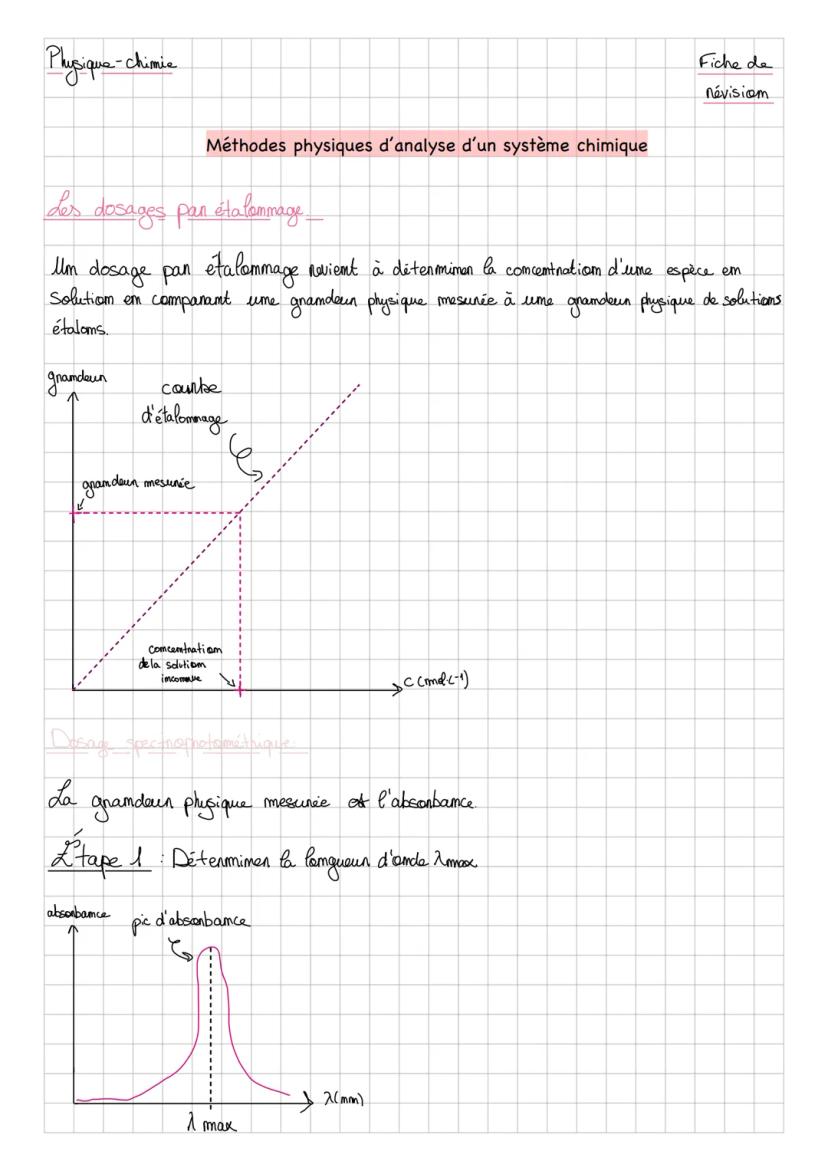 Physique-chimie
Fiche de
révision
Méthodes physiques d'analyse d'un système chimique
Les dosages par étalonnage
Un dosage par étalonnage revient à déterminer la concentration d'une espèce en
solution en comparant une grandeur physique mesurée à une grandeur physique de solutions
étalons.
grandeur
courbe
d'étalonnage
grandeur mesurée
concentration
de la solution
inconnue
C (mol·L-1)
Dosage spectrophotométrique:
La grandeur physique mesurée est l'absorbance.
Étape 1 : Déterminer la longueur d'onde λmax
absorbance
pic d'absorbance
λ(nm)
λ max